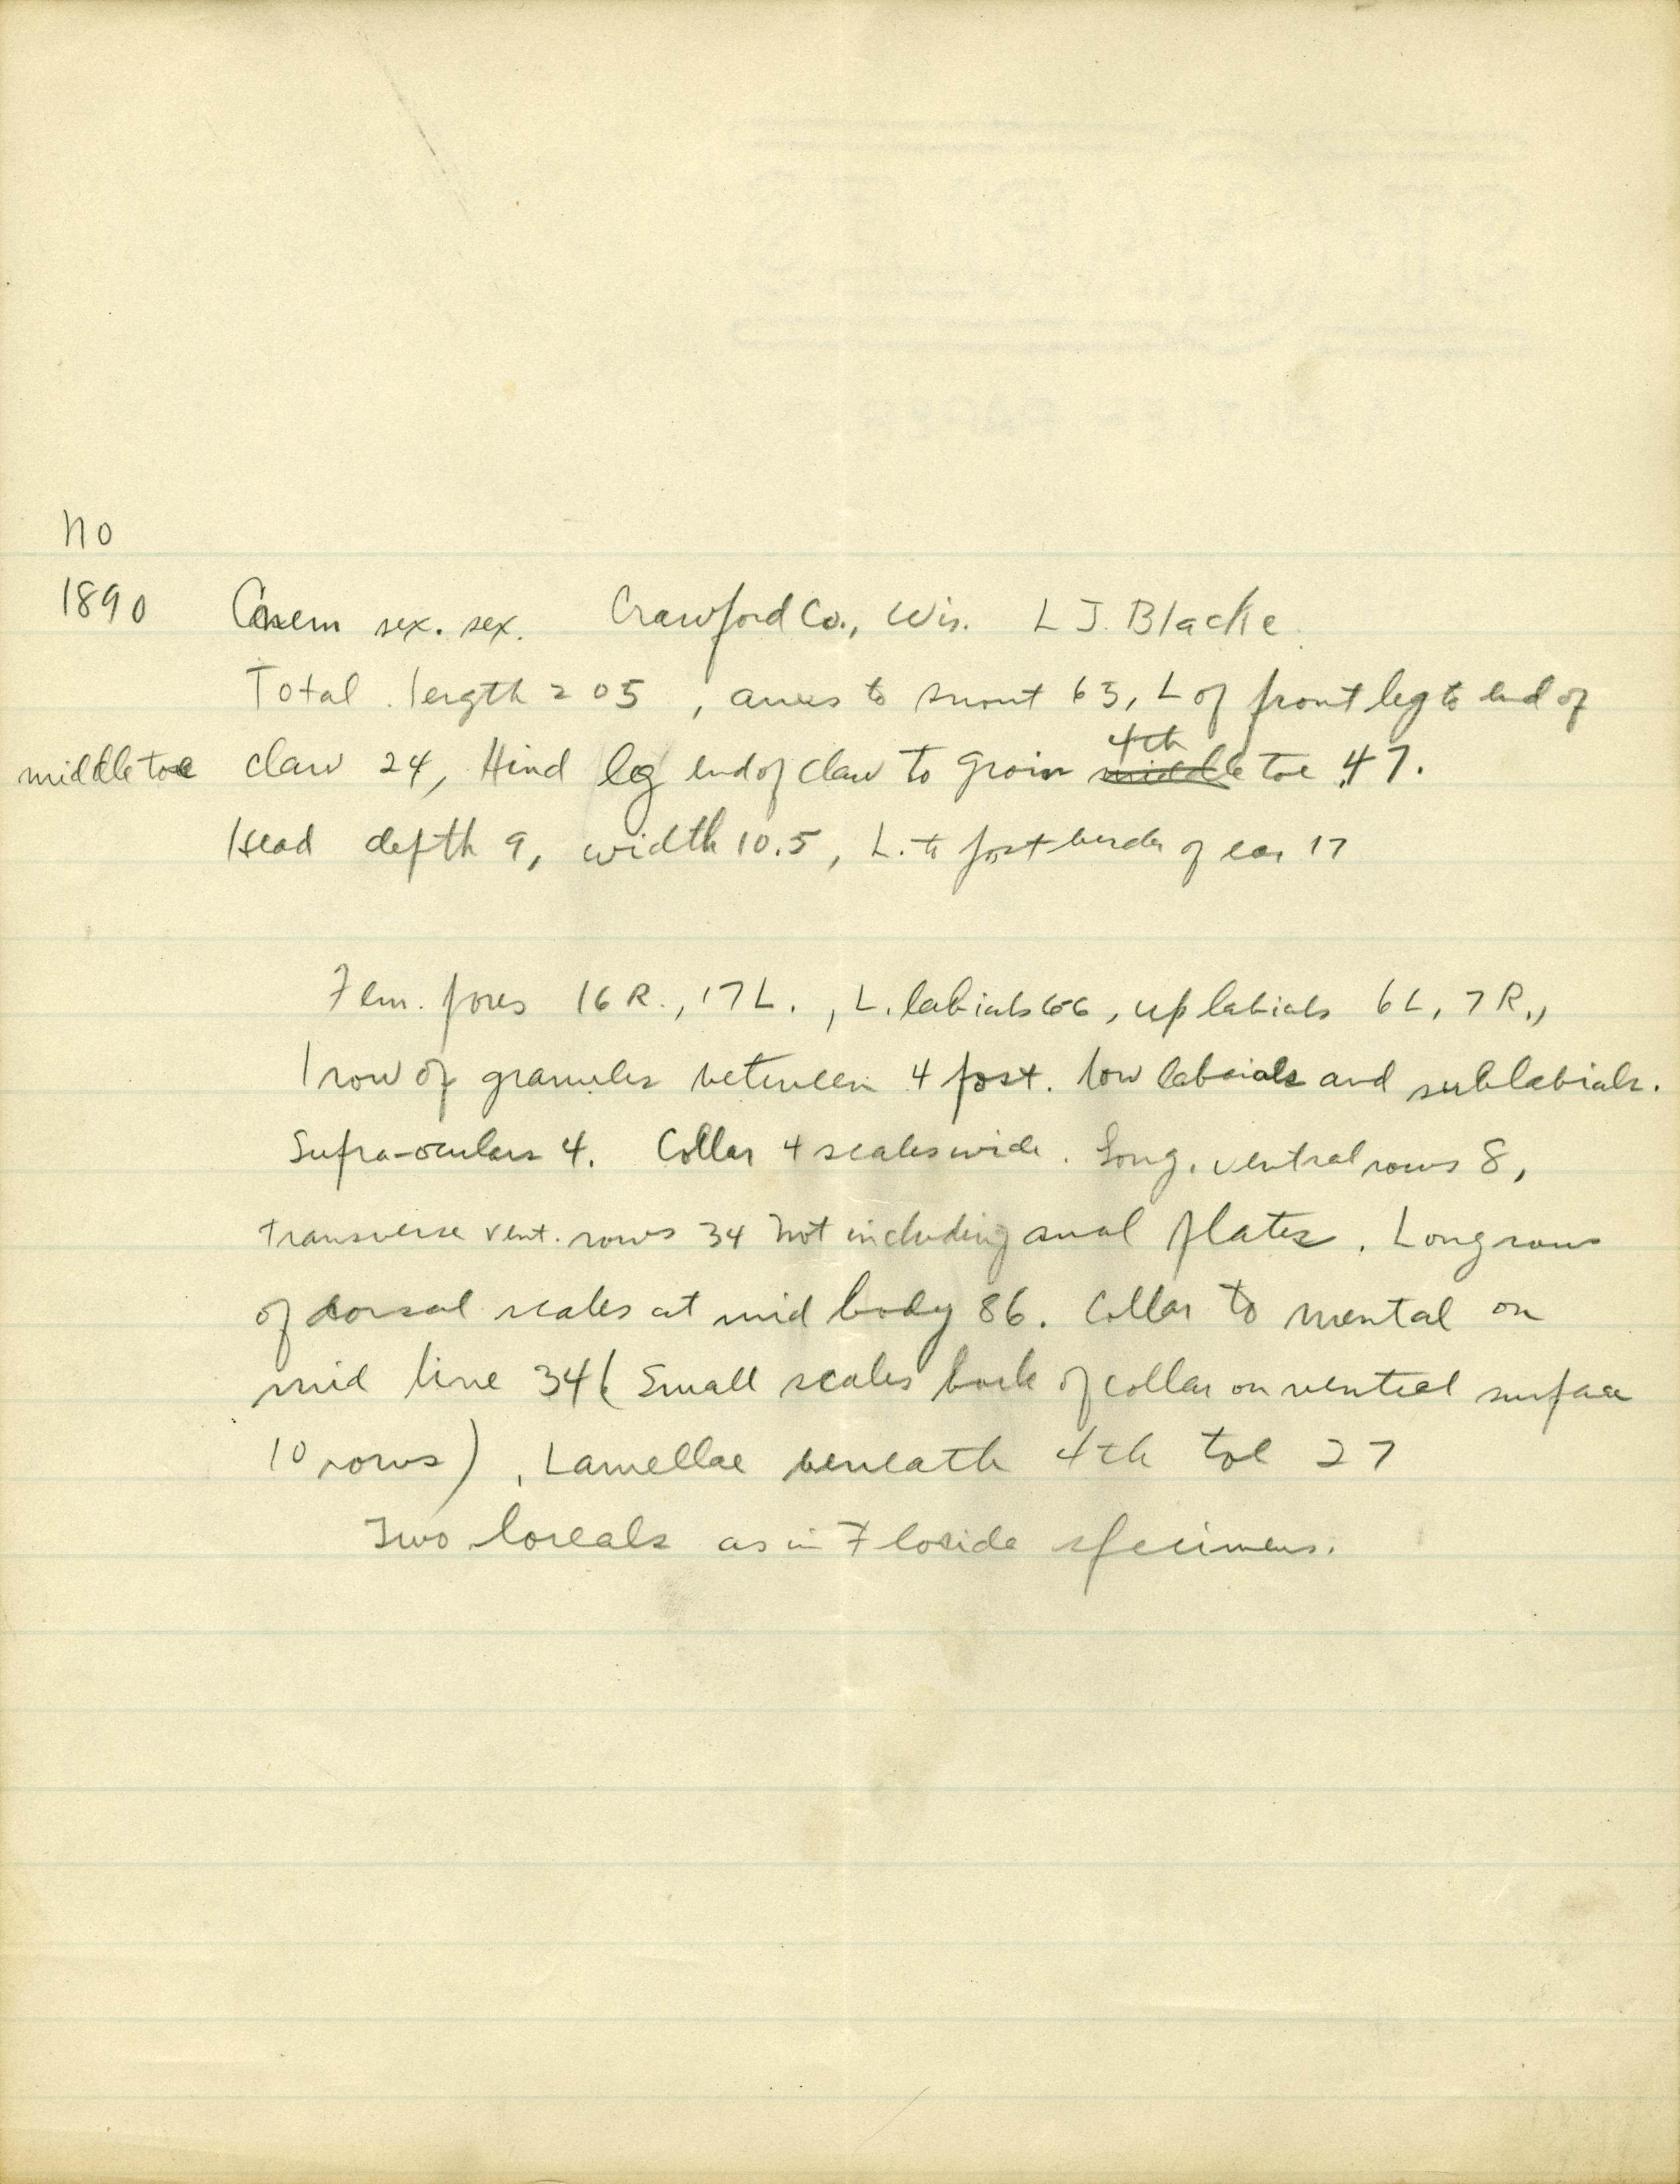 No
1890 Cnem sex. sex. Crawford Co., Wis. L J. Blache
Total length 205, anus to snout 63, L of front leg to end of
middle toe claw 24, Hind leg end of claw to groin 4th toe 47.
Head depth 9, width 10.5, L. to post border of ear 17
Fem. pores 16 R., 17 L., L. labials 66, up labials 6 L, 7 R.,
1 row of granules between 4 post. low labials and sublabials.
Supra-oculars 4. Collar 4 scales wide. Long. ventral rows 8,
transverse vent. rows 34 not including anal plates. Long rows
of dorsal scales at mid body 86. Collar to mental on
mid line 34 (Small scales back of collar on ventral surface
10 rows), Lamellae beneath 4th toe 27
Two loreals as in Florida specimens.